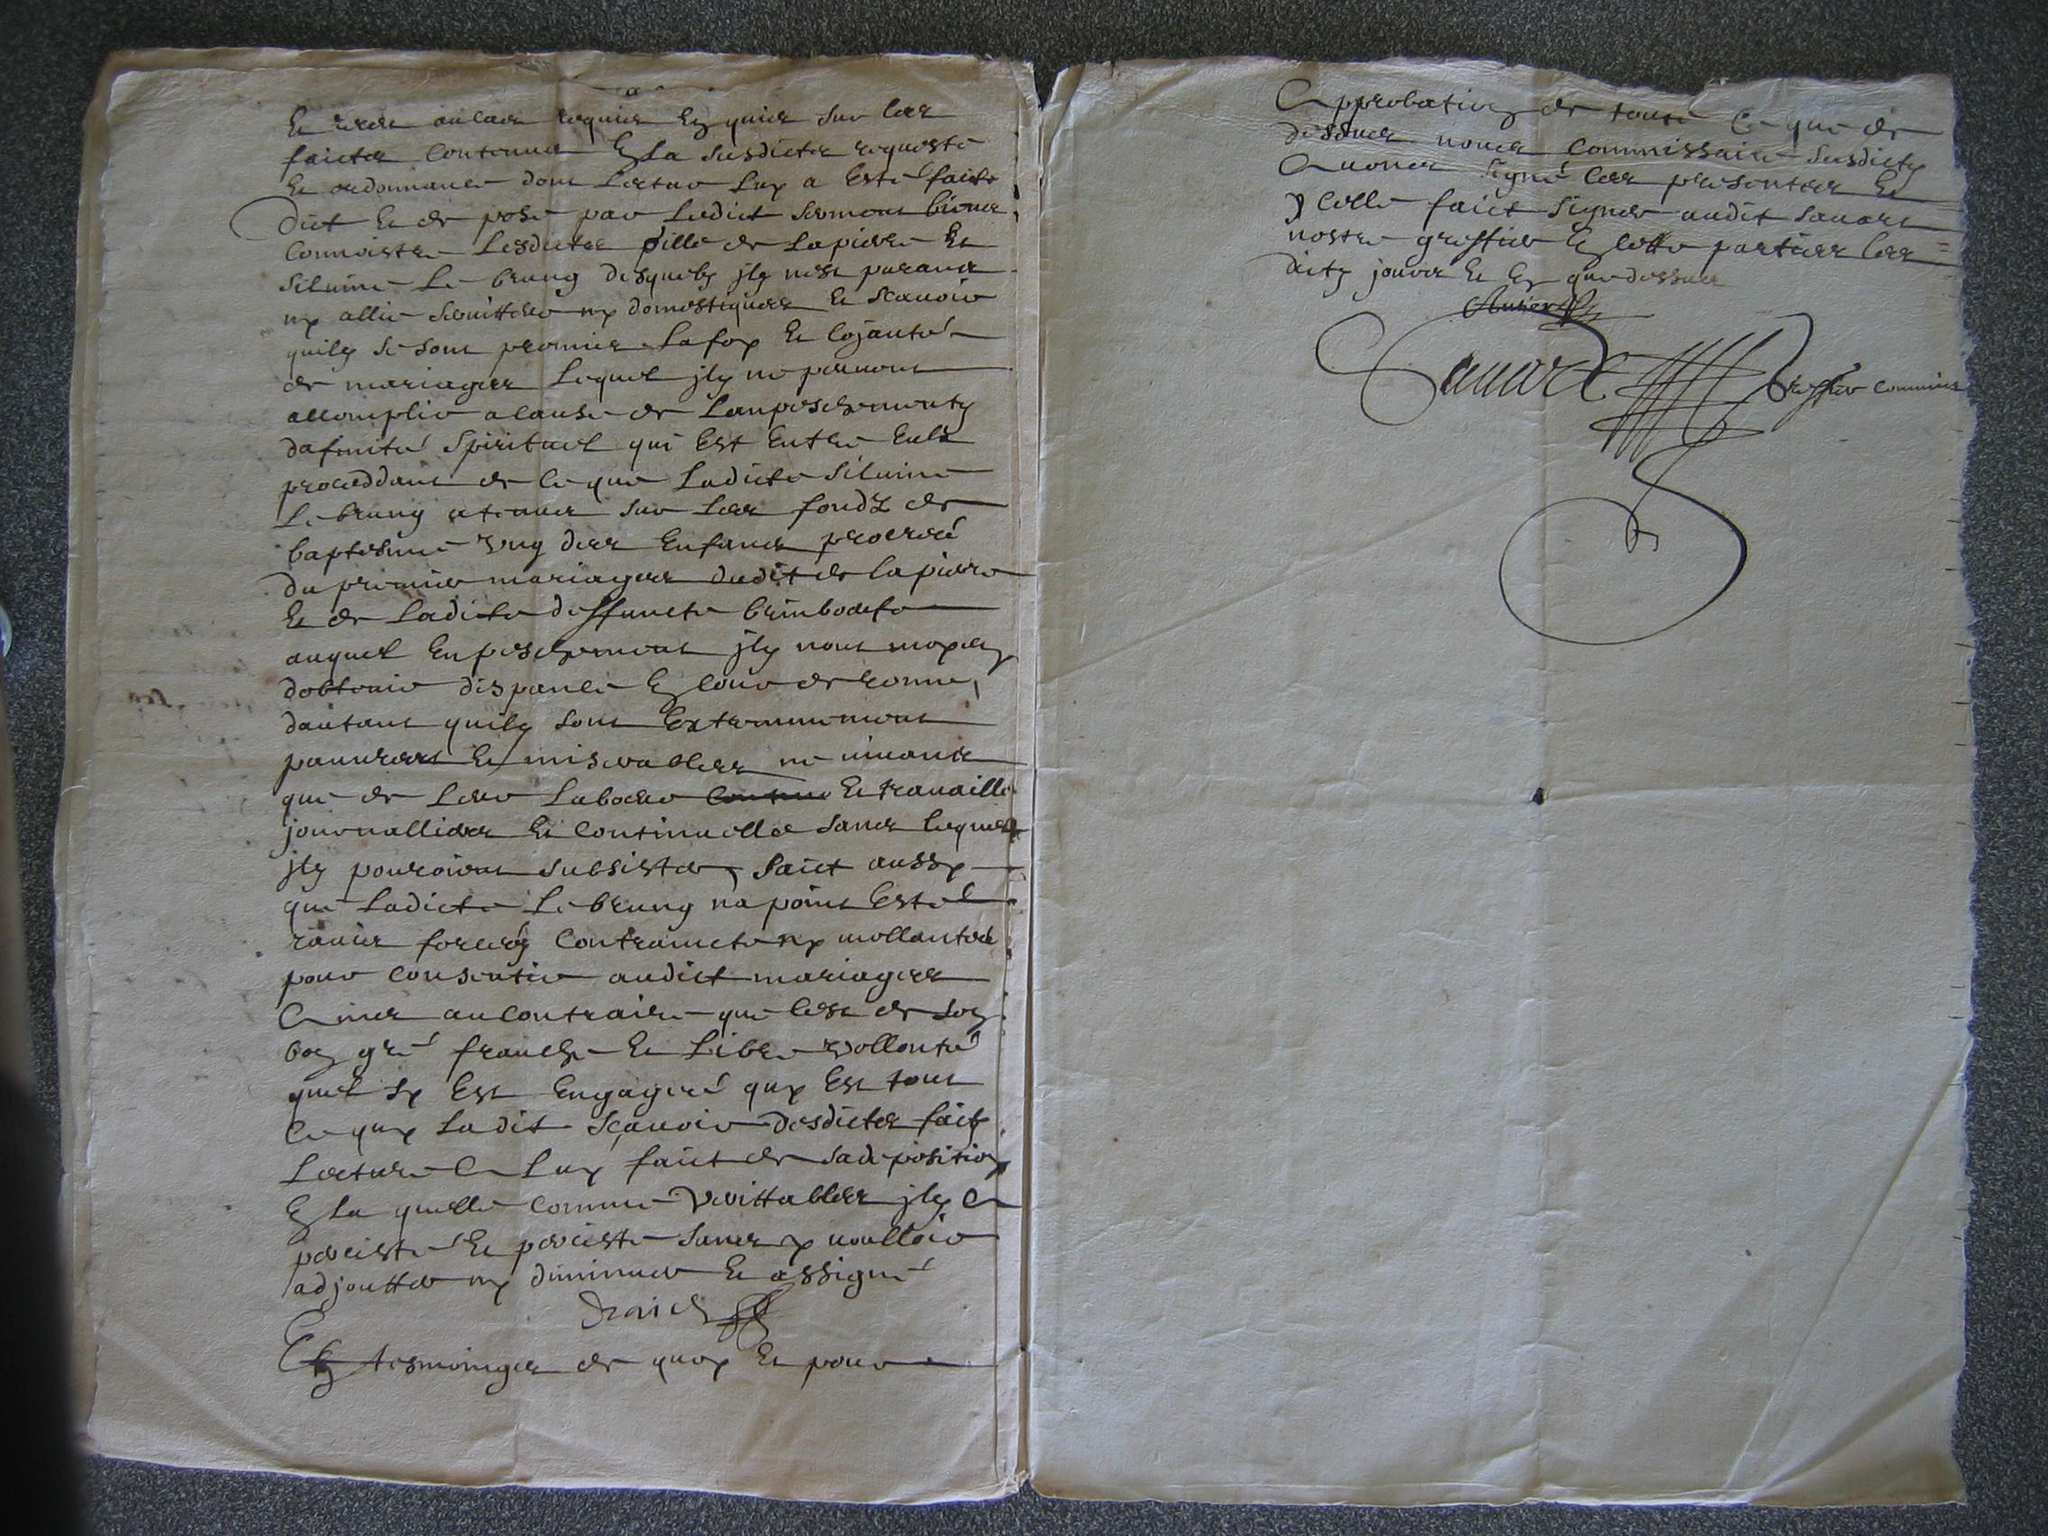 faictes contenues En la susdictes requeste
Et ordonnance dont Lecture Luy a Esté faicte
Dict Et de pose par Ledict serment bienes
Connoistre Lesdictes Gille de Lapierre Et
Silvine Le brung desquels jly nest parans
ny allié servitteur ny domestiques Et scavoir
quily se sont promies La foy Et loyauté
de mariages Lequel jly ne peuvent
accomplir a cause de Lanpeschement
dafinité Spirituel qui Est Entre Eulx
proceddant de ce que Ladicte Silvine
Le brung a tenue sur Les fondz de
baptesme Vng des Enfans procréé
du premier mariages dudit de Lapierre
Et de Ladicte deffuncte
auquel Enpeschement jly nont moyen
dobtenir dispance En cour de romme,
dautant quily sont Extremmement
pauvres Et miserables ne vivants
que de Leur Labeur Et travaille
journallier Et Continuelle sans lequel
jly pouroient subsister, Sait aussy
que Ladicte Le brung na point Esté
ravie forcée Contraincte ny
pour Consentir audict mariages
Ains au contraire que cest de son
bon gré franche Et Libre vollonté
quel sy Est Engagée quy Est tout
Ce quy Ladit Scavoir desdictes faictz
Lecture A Luy faict de sa deposition
En la quelle comme Verittables jly A
perciste Et perciste sans y voulloir
adjoutter ny diminuer Et a signé
En tesmoinges de quoy Et pour
Approbation de tout Ce que de
dessus nous commissaire susdict
Avons signé Ces presentes Et
Icelle faict signer audit Savart
nostre greffier En cette parties Les
dictz jours Et En que dessus
Savart Greffier Commis